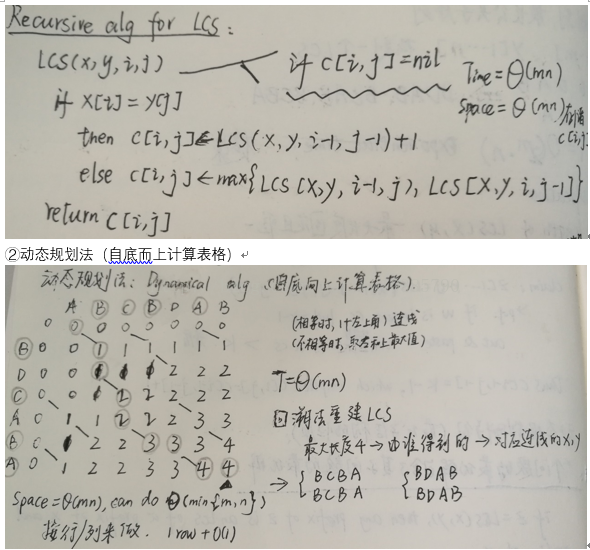 Recursive alg for LCS:
LCS(x,y,i,j) if c[i,j]=nil
Time=Θ(mn)
if X[i]=Y[j] Space=Θ(mn)存储
c[i,j]
then c[i,j]←LCS(x,y,i-1,j-1)+1
else c[i,j]←max{LCS[X,Y,i-1,j),LCS[X,Y,i,j-1]}
return c[i,j]
②动态规划法（自底而上计算表格）
动态规划法:Dynamical alg (自底向上计算表格).
A B C B D A B
0 0 0 0 0 0 0 0
(相等时,1+左上角)连线
(不相等时,取左和上最大值)
B 0 0 1 1 1 1 1 1
D 0 0 1 1 1 2 2 2
T=Θ(mn)
C 0 0 1 2 2 2 2 2
回溯法重建LCS
A 0 1 1 2 2 2 3 3
最大长度4→由谁得到的→对应连线的x,y
B 0 1 2 2 3 3 3 4
A 0 1 2 2 3 3 4 4
→ { BCBA { BDAB
BCBA BDAB
Space=Θ(mn), can do Θ(min{m,n})
按行/列来做. 1row+O(1)